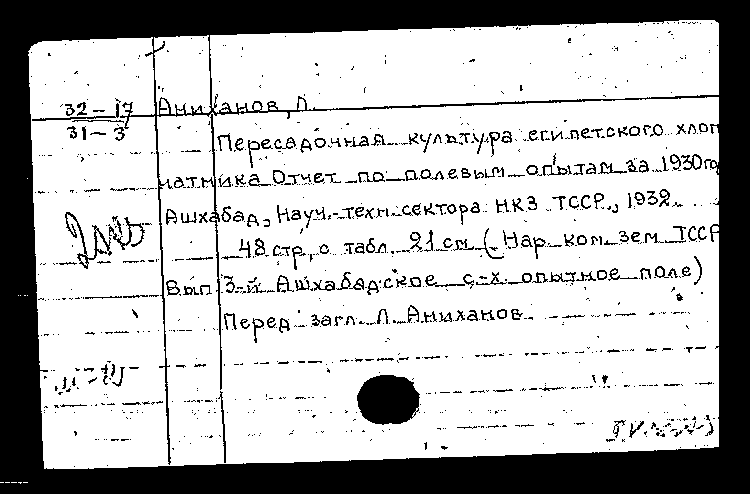 32-17
31-3
Аниханов, Л.
Пересадочная культура египетского хлоп
чатника Отчет по полевым опытам за 1930 го
Ашхабад, Науч.-техн. сектора НКЗ ТССР., 1932.
48 стр, с табл. 21 см (Нар. ком. зем ТССР
Вып 3-й Ашхабадское с-х. опытное поле)
Перед загл. Л. Аниханов.